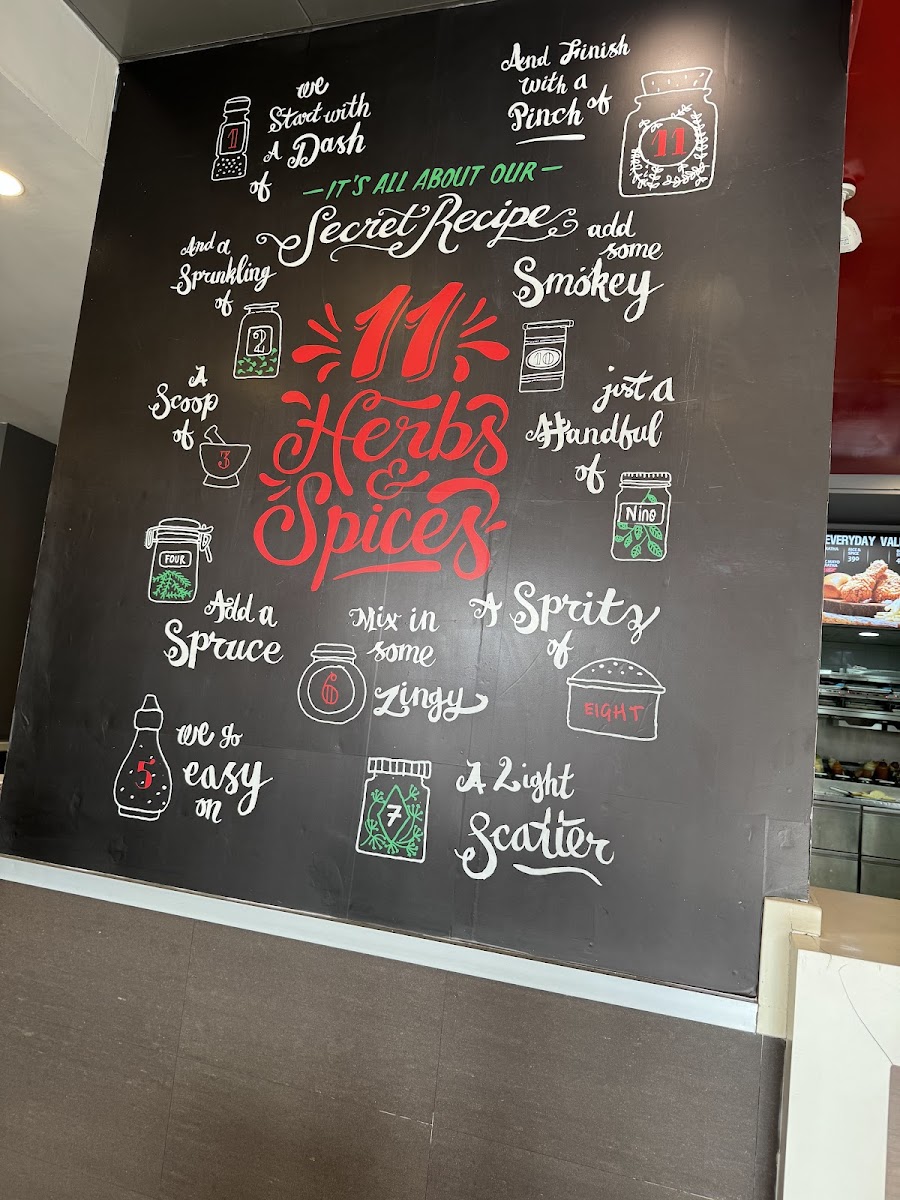 we
Start with
A Dash
of
1
And Finish
with a
Pinch of
11
— IT'S ALL ABOUT OUR —
Secret Recipe
11
Herbs
&
Spices
And a
Sprinkling
of
2
A
Scoop
of
3
FOUR
Add a
Spruce
5
we go
easy
on
Mix in
some
Zingy
6
7
A Light
Scatter
A Spritz
of
EIGHT
just A
Handful
of
Nine
add
some
Smokey
10
EVERYDAY VALU
RICE &
SPICE
390